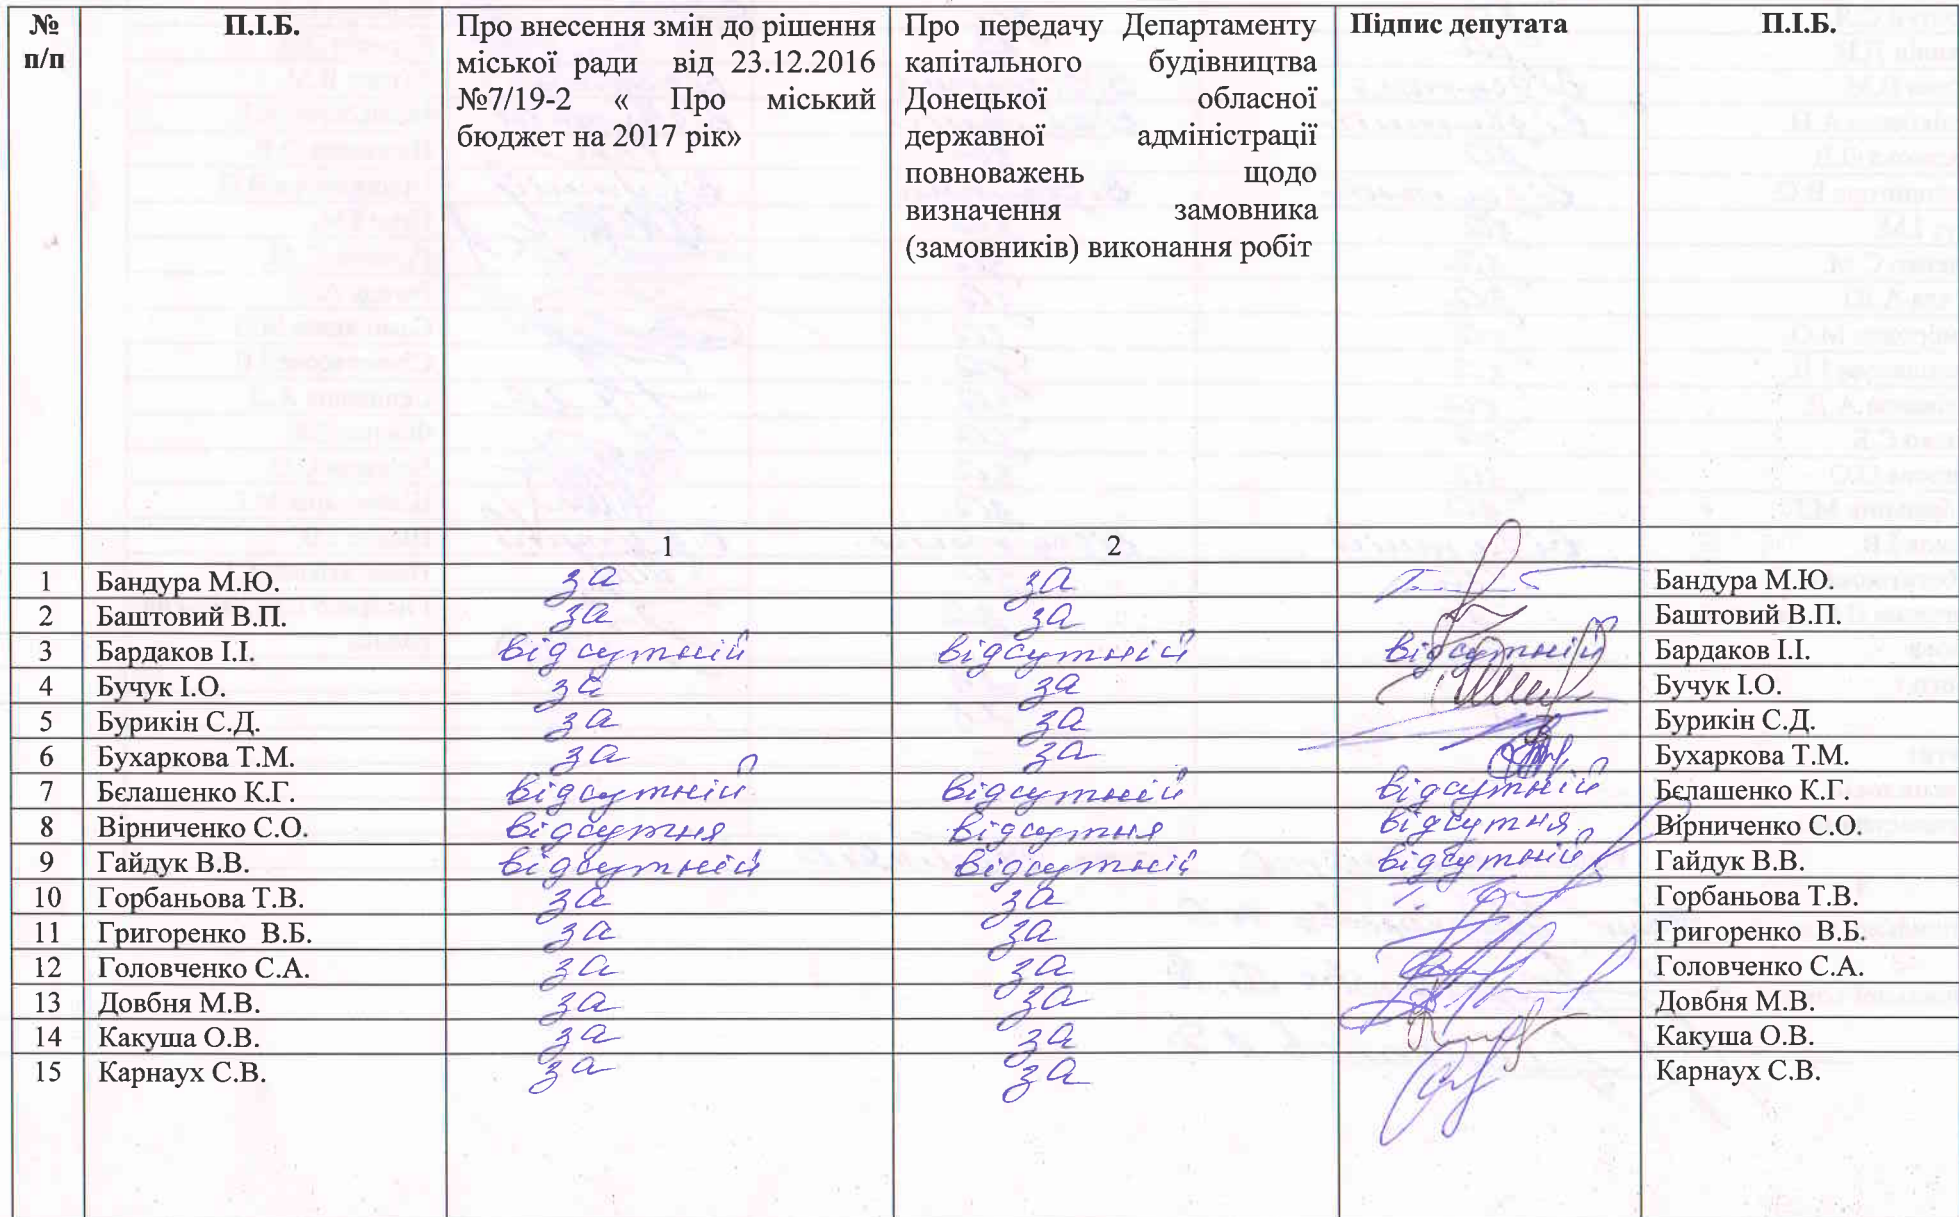 № п/п | П.І.Б. | Про внесення змін до рішення міської ради від 23.12.2016 №7/19-2 « Про міський бюджет на 2017 рік» | Про передачу Департаменту капітального будівництва Донецької обласної державної адміністрації повноважень щодо визначення замовника (замовників) виконання робіт | Підпис депутата | П.І.Б.
1 | 2
1 | Бандура М.Ю. | за | за | Бандура М.Ю.
2 | Баштовий В.П. | за | за | Баштовий В.П.
3 | Бардаков І.І. | відсутній | відсутній | відсутній | Бардаков І.І.
4 | Бучук І.О. | за | за | Бучук І.О.
5 | Бурикін С.Д. | за | за | Бурикін С.Д.
6 | Бухаркова Т.М. | за | за | Бухаркова Т.М.
7 | Бєлашенко К.Г. | відсутній | відсутній | відсутній | Бєлашенко К.Г.
8 | Вірниченко С.О. | відсутня | відсутня | відсутня | Вірниченко С.О.
9 | Гайдук В.В. | відсутній | відсутній | відсутній | Гайдук В.В.
10 | Горбаньова Т.В. | за | за | Горбаньова Т.В.
11 | Григоренко В.Б. | за | за | Григоренко В.Б.
12 | Головченко С.А. | за | за | Головченко С.А.
13 | Довбня М.В. | за | за | Довбня М.В.
14 | Какуша О.В. | за | за | Какуша О.В.
15 | Карнаух С.В. | за | за | Карнаух С.В.